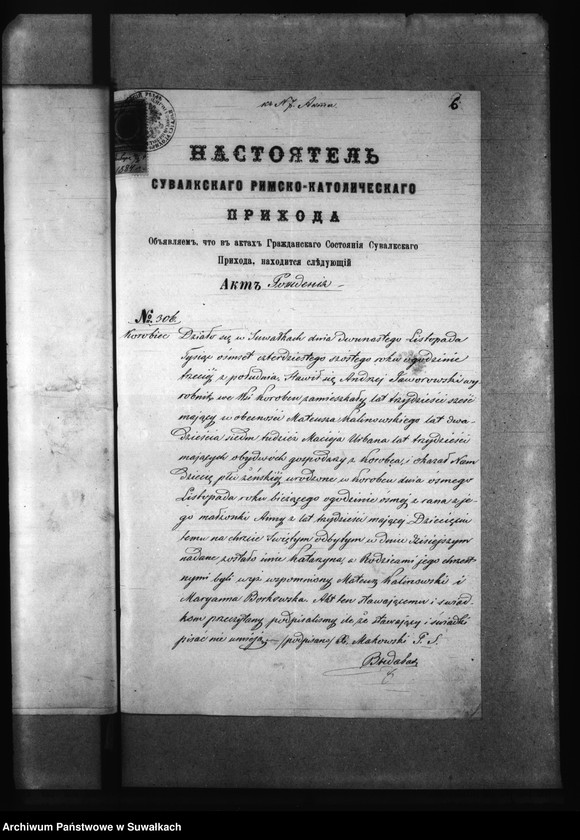 къ N 7. Акта
6
НАСТОЯТЕЛЬ
СУВАЛКСКАГО РИМСКО-КАТОЛИЧЕСКАГО
ПРИХОДА
Объявляемъ, что въ актахъ Гражданскаго Состоянія Сувалкскаго
Прихода, находится слѣдующій
Актъ Рожденія
№ 306.
Korobiec Działo się w Suwałkach dnia dwunastego Listopada
Tysiąc ośmset czterdziestego szostego roku o godzinie
trzeciéj z południa, Stawił się Andrzej Jaworowski wy
robnik we Wsi Korobcu zamieszkały lat trzydzieści sześć
mający w obecności Mateusza Kalinowskiego lat dwa-
dzieścia siedm tudzież Macieja Urbana lat trzydzieści
mających obydwóch gospodarzy z Korobca, i okazał Nam
dziecię płci żeńskiéj urodzone w Korobcu dnia osmego
Listopada roku bieżącego o godzinie osméj z rana z je-
go małżonki Anny z lat trzydzieści mającej Dziecięciu
temu na chrzcie Swiętym odbytym w dniu dzisiejszym
nadane zostało imie Katarzyna, a Rodzicami jego chrzest-
nymi byli wyż wspomniony Mateusz Kalinowski i
Maryanna Borkowska. Akt ten stawającemu i świad-
kom przeczytany podpisaliśmy, że stawający i świadki
pisać nie umieją. (podpisano) X. Makowski P. S.
Archiwum Państwowe w Suwałkach